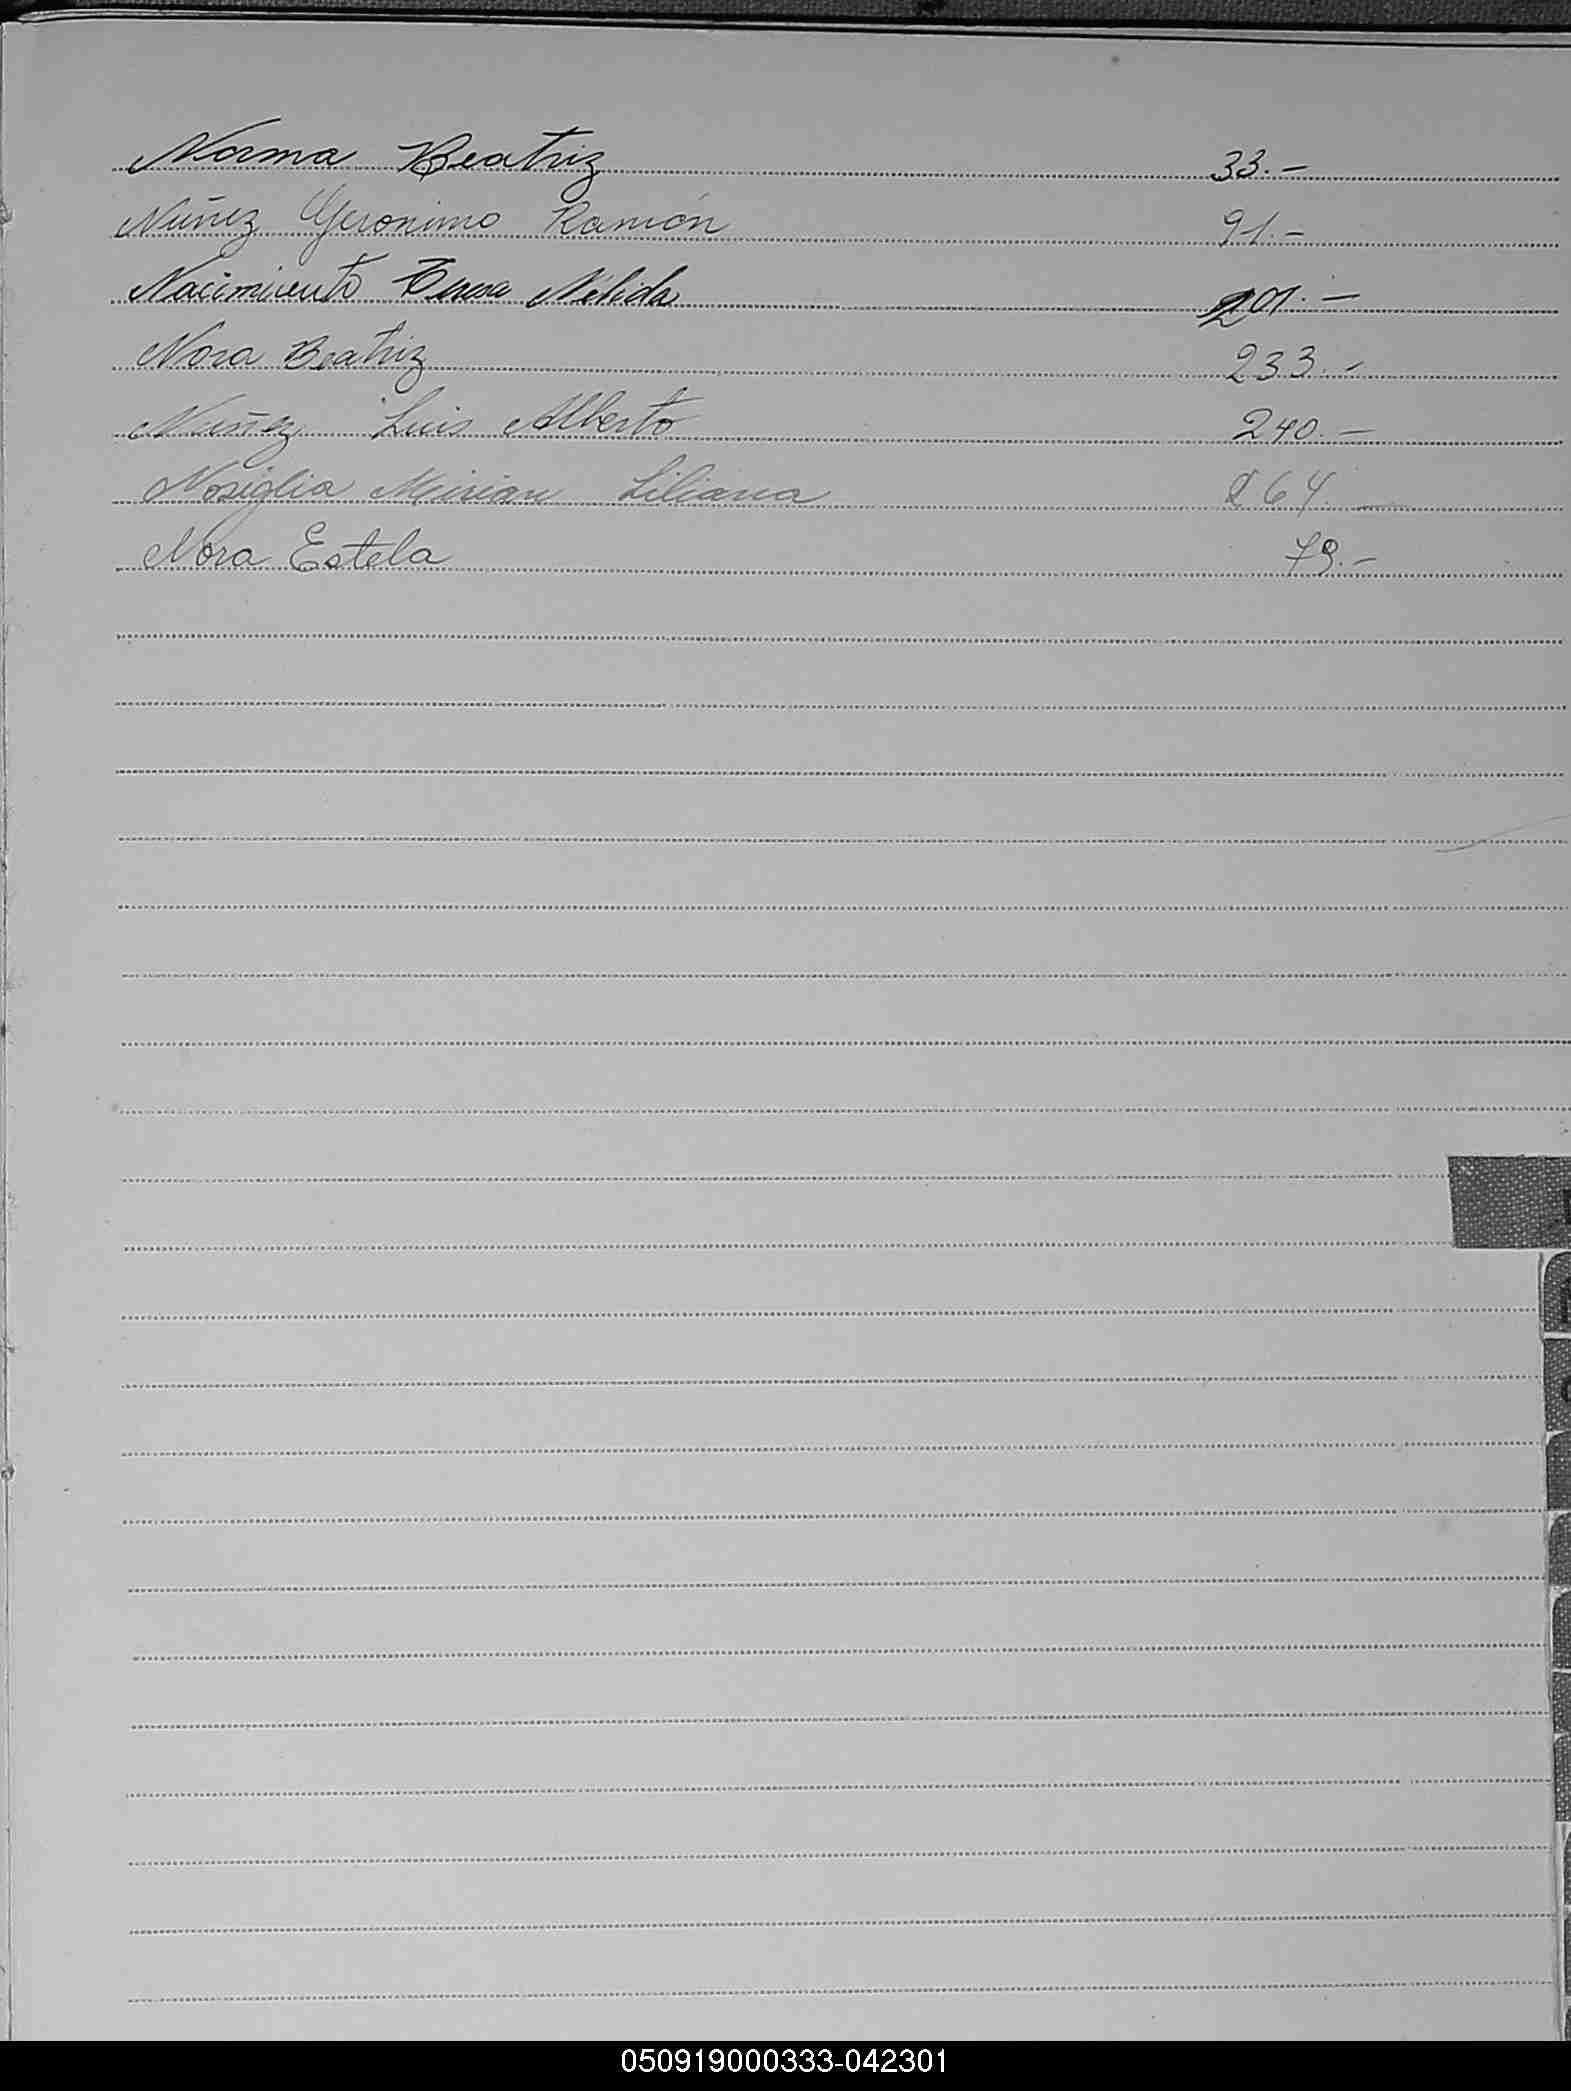 Norma Beatriz 33.-
Núñez Geronimo Ramón 91.-
Nacimiento Teresa Nélida 201.-
Nora Beatriz 233.-
Nuñez Luis Alberto 240.-
Nosiglia Mirian Liliana 264.-
Nora Estela 79.-
050919000333-042301